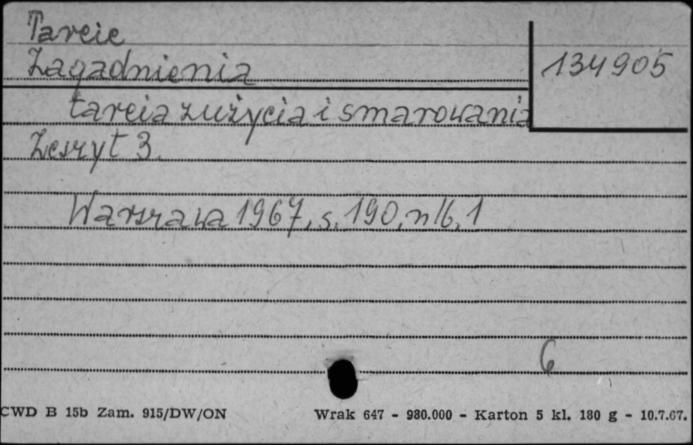 Tarcie
Zagadnienia
134905
tarcia zużycia i smarowania
Zeszyt 3.
Warszawa 1967, s. 190, nlb. 1
6
CWD B 15b Zam. 915/DW/ON
Wrak 647 - 980.000 - Karton 5 kl. 180 g - 10.7.67.